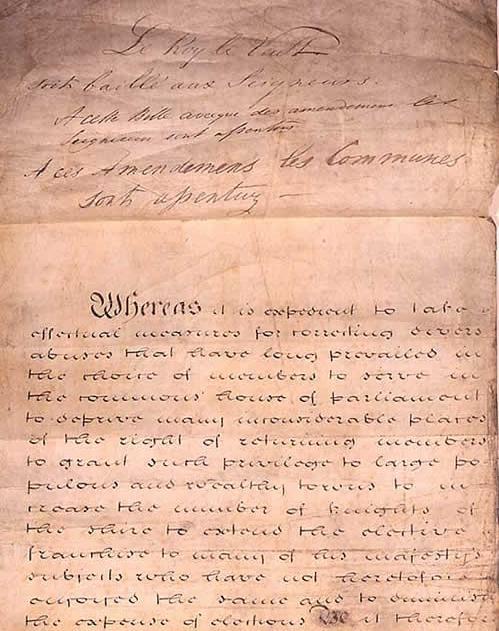 Le Roy le Veult
soit baillé aux Seigneurs.
A cette Bille avecque des amendemens les
Seigneurs sont assentus
A ces Amendemens les Communes
sont assentuz
Whereas it is expedient to take
effectual measures for correcting divers
abuses that have long prevailed in
the choice of members to serve in
the commons house of parliament
to deprive many inconsiderable places
of the right of returning members
to grant such privilege to large po
pulous and wealthy towns to in
crease the number of knights of
the shire to extend the elective
franchise to many of his majestys
subjects who have not heretofore
enjoyed the same and to diminish
the expense of elections Be it therefore